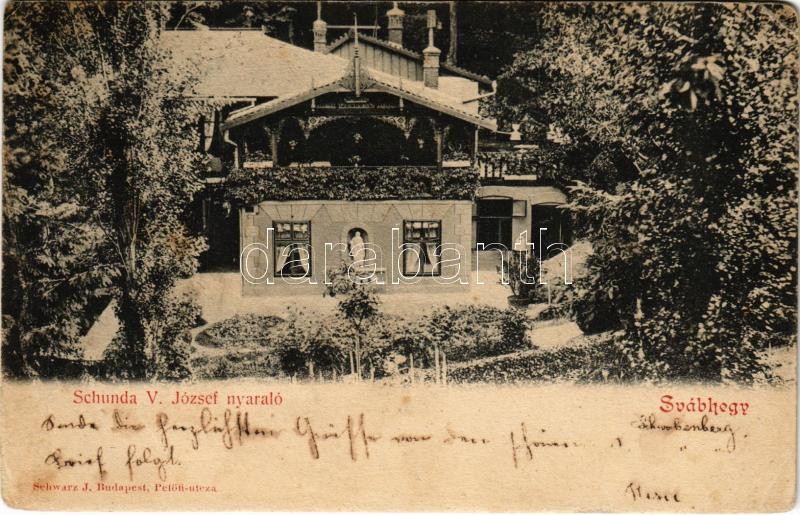 darabanth
Schunda V. József nyaraló
Svábhegy
Sende die herzlichsten Grüsse von dem schönen
Schwabenberg.
Brief folgt.
Schwarz J. Budapest, Petőfi-utcza